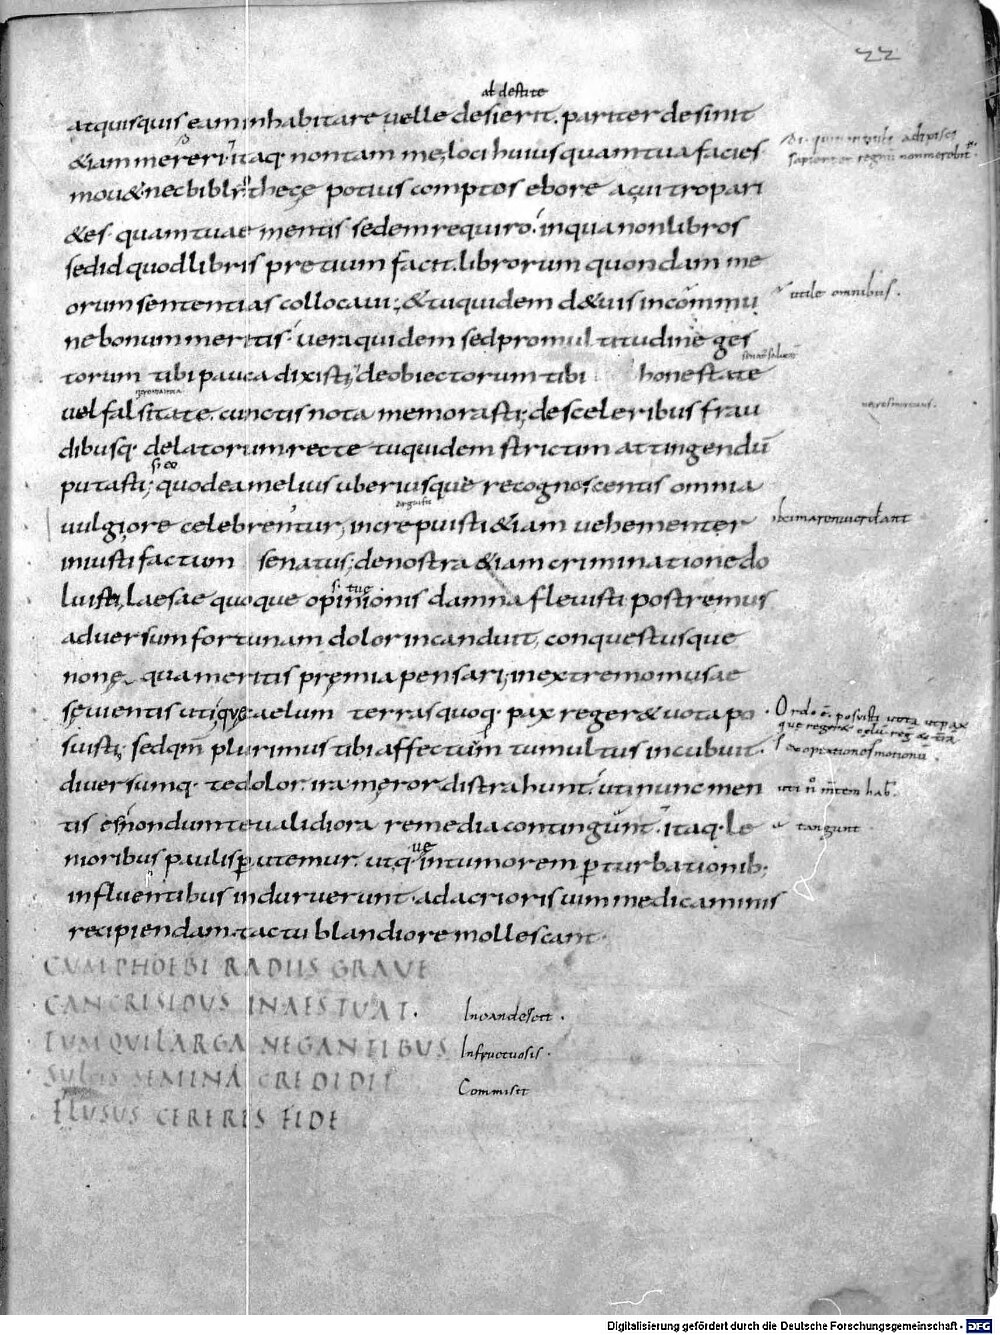 22
al destite
atquisquis eam inhabitare uelle desierit. pariter desinit
&iam mereri. itaq. non tam me loci huius quam tua facies
mou& nec bibliothece potius comptos ebore acuitro pari
&es. quam tuae mentis sedem requiro. in qua non libros
sed id quod libris pretium facit. librorum quondam me
orum sententias collocaui; &tu quidem d&uis in commu
utile omnibus.
ne bonum meritis. uera quidem sed pro multitudine ges
torum tibi pauca dixisti; de obiectorum tibi honestate
uel falsitate. cunctis nota memorasti; de sceleribus frau
dibusq. delatorum recte tu quidem strictim attingendū
si eo
putasti; quod ea melius uberiusque recognoscentis omnia
uulgi ore celebrentur, increpuisti &iam uehementer
iniusti factum senatus; de nostra &iam criminatione do
luisti, laesae quoque opinionis damna fleuisti postremus
aduersum fortunam dolor incanduit, conquestusque
non ę qua meritis pręmia pensari; in extremo musae
sęuientis uti que caelum terras quoq. pax reger& uota po
suisti; sed qm plurimus tibi affectuum tumultus incubuit.
diuersumq. te dolor. ira męror distrahunt. uti nunc men
uti n̄ mentem hab.
tis es nondum te ualidiora remedia contingunt. itaq. le
tangunt
nioribus paulisp utemur. ut q in tumorem pturbationib;
influentibus induruerunt. ad acrioris uim medicaminis
recipiendam. tactu blandiore mollescant.
CUM PHOEBI RADIIS GRAUE
CANCRI SIDUS INAESTUAT. Incandescit.
TUM QUI LARGA NEGANTIBUS Infructuosis.
SULCIS SEMINA CREDIDIT Commisit
ELUSUS CERERIS FIDE
Digitalisierung gefördert durch die Deutsche Forschungsgemeinschaft - DFG